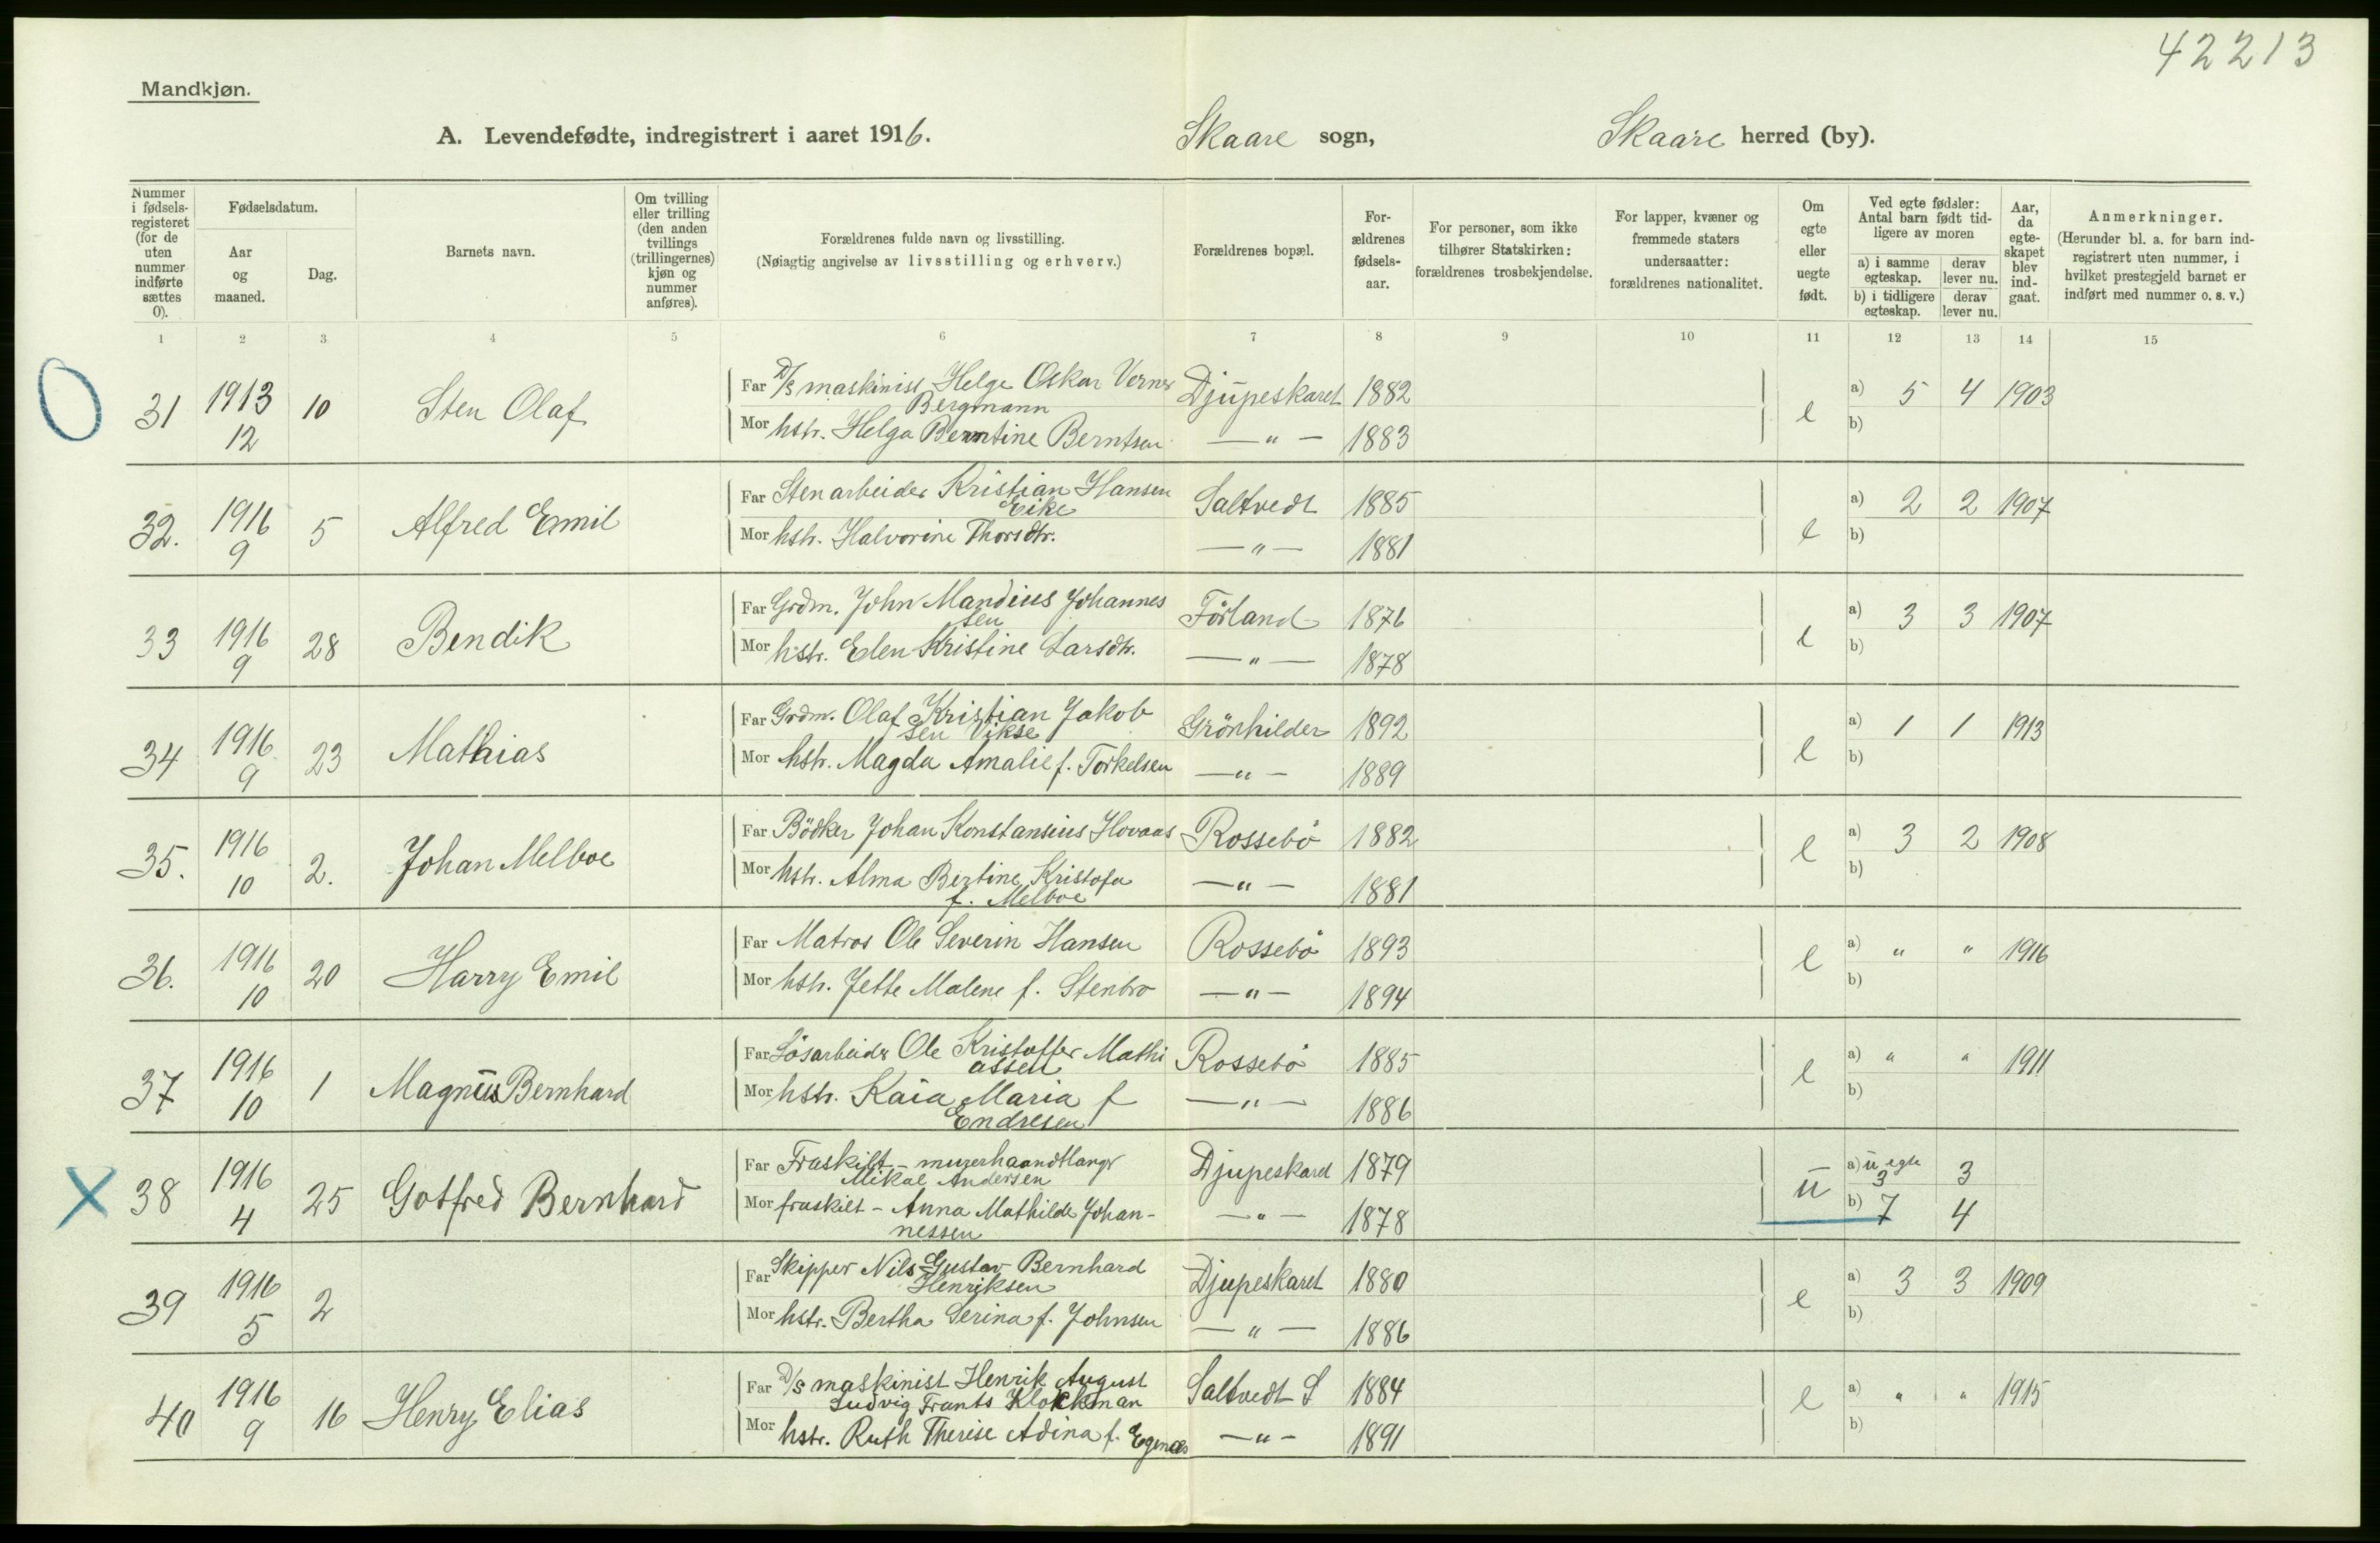 42213
Mandkjøn.
A. Levendefødte, indregistrert i aaret 1916. Skaare sogn, Skaare herred (by).
Nummer i fødsels-registeret (for de uten nummer indførte sættes 0).
Fødselsdatum.
Aar og maaned.
Dag.
Barnets navn.
Om tvilling eller trilling (den anden tvillings (trillingernes) kjøn og nummer anføres).
Forældrenes fulde navn og livsstilling.
(Nøiagtig angivelse av livsstilling og erhverv.)
Forældrenes bopæl.
For-ældrenes fødsels-aar.
For personer, som ikke tilhører Statskirken: forældrenes trosbekjendelse.
For lapper, kvæner og fremmede staters undersaatter: forældrenes nationalitet.
Om egte eller uegte født.
Ved egte fødsler: Antal barn født tid-ligere av moren
a) i samme egteskap. derav lever nu.
b) i tidligere egteskap. derav lever nu.
Aar, da egte-skapet blev ind-gaat.
Anmerkninger.
(Herunder bl. a. for barn ind-registrert uten nummer, i hvilket prestegjeld barnet er indført med nummer o. s. v.)
1 2 3 4 5 6 7 8 9 10 11 12 13 14 15
O 31 1913 12 10 Sten Olaf
Far D/s maskinist Helge Oskar Verner Bergmann Djupeskaret 1882
Mor hstr. Helga Berntine Berntsen — " — 1883
e a) 5 4 1903
b)
32. 1916 9 5 Alfred Emil
Far Stenarbeider Kristian Hansen Eike Saltvedt 1885
Mor hstr. Halvorine Thorsdtr. — " — 1881
e a) 2 2 1907
b)
33 1916 9 28 Bendik
Far Grdm. John Mandius Johannes sen Førland 1876
Mor hstr. Elen Kristine Larsdtr. — " — 1878
e a) 3 3 1907
b)
34 1916 9 23 Mathias
Far Grdm. Olaf Kristian Jakob sen Vikse Grönhilder 1892
Mor hstr. Magda Amalie f. Torkelsen — " — 1889
e a) 1 1 1913
b)
35. 1916 10 2. Johan Melboe
Far Bödker Johan Konstansius Hovaas Rossebö 1882
Mor hstr. Alma Bertine Kristofa f. Melboe — " — 1881
e a) 3 2 1908
b)
36. 1916 10 20 Harry Emil
Far Matros Ole Severin Hansen Rossebö 1893
Mor hstr. Jette Malene f. Stenbro — " — 1894
e a) " " 1916
b)
37 1916 10 1 Magnus Bernhard
Far Lösarbeider Ole Kristoffer Mathi assen Rossebö 1885
Mor hstr. Kaia Maria f Endresen — " — 1886
e a) " " 1911
b)
X 38 1916 4 25 Gotfred Bernhard
Far Fraskilt - murerhaandtlanger Mikal Andersen Djupeskard 1879
Mor fraskilt - Anna Mathilde Johan-nessen — " — 1878
u a) uegte 3 3
b) 7 4
39 1916 5 2
Far Skipper Nils Gustav Bernhard Henriksen Djupeskaret 1880
Mor hstr. Bertha Serina f. Johnsen — " — 1886
e a) 3 3 1909
b)
40 1916 9 16 Henry Elias
Far D/s maskinist Henrik August Ludvig Frants Klockman Saltvedt S 1884
Mor hstr. Ruth Therese Adina f. Egenæs — " — 1891
e a) " " 1915
b)